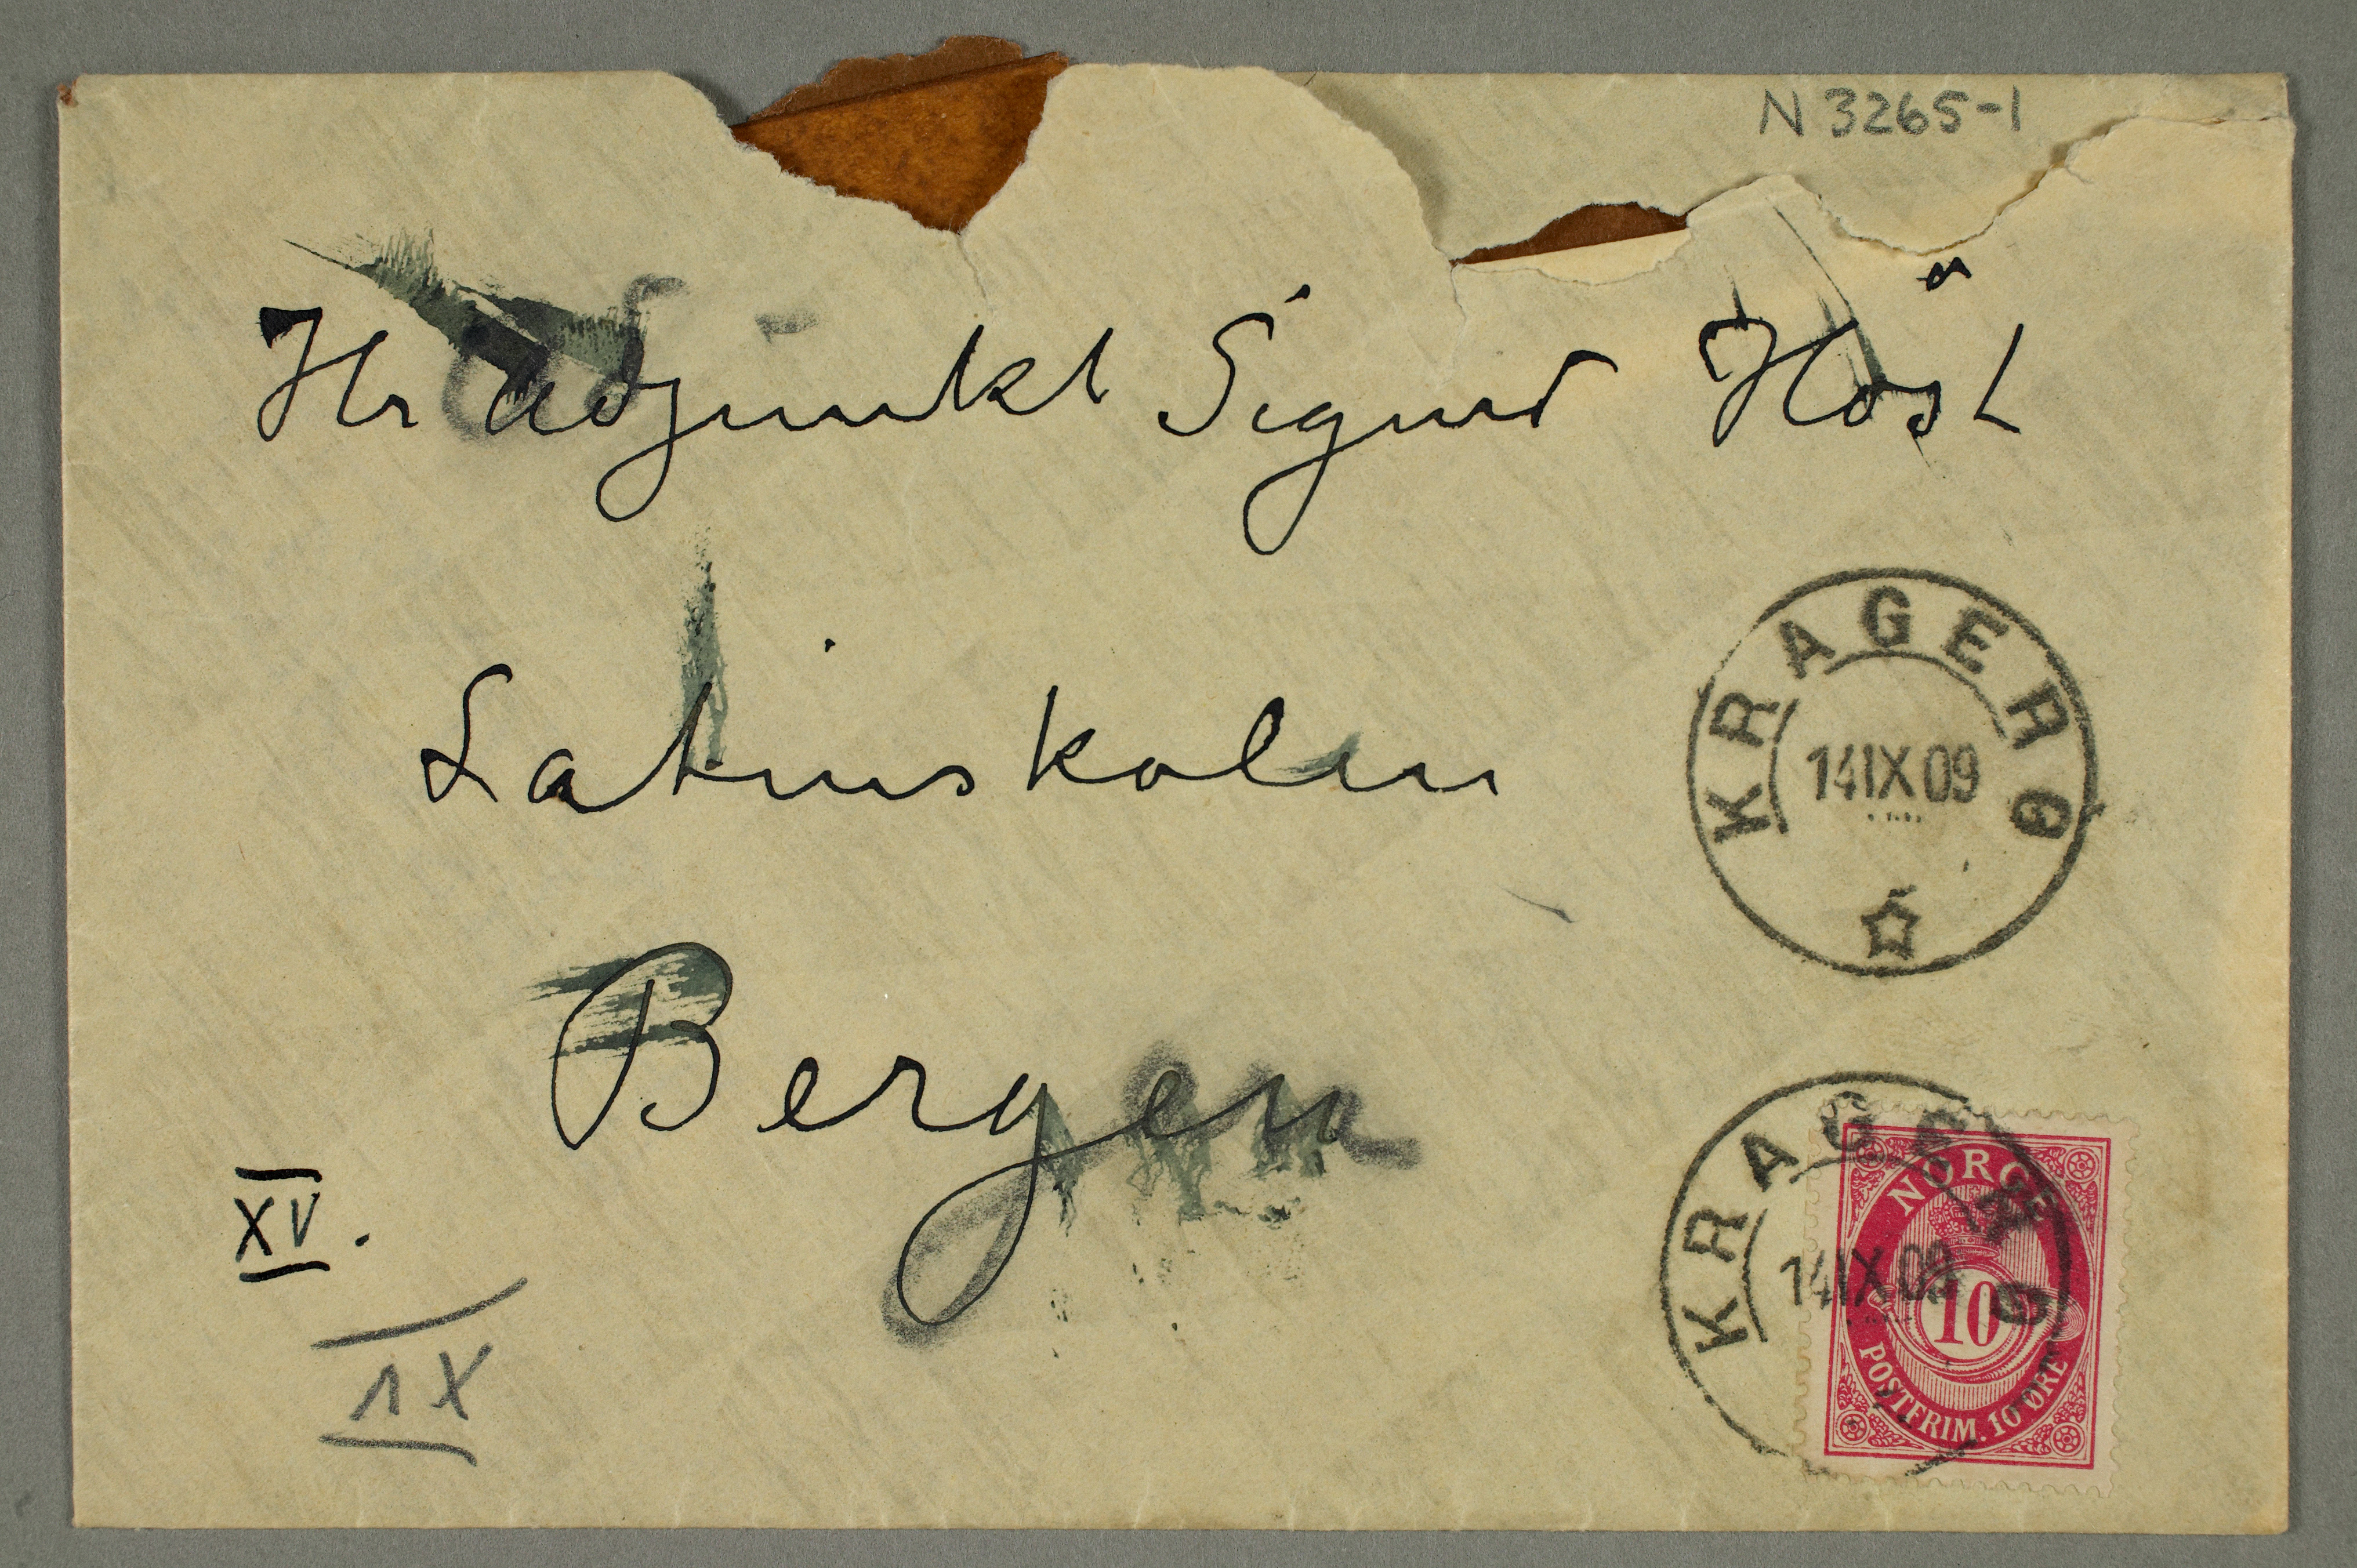 N 3265-1
Hr adjunkt Sigurd Höst
Latinskolen
Bergen
KRAGERØ
14 IX 09
KRAGERØ
14 IX 09
NORGE
10
POSTFRIM. 10 ØRE
XV.
IX